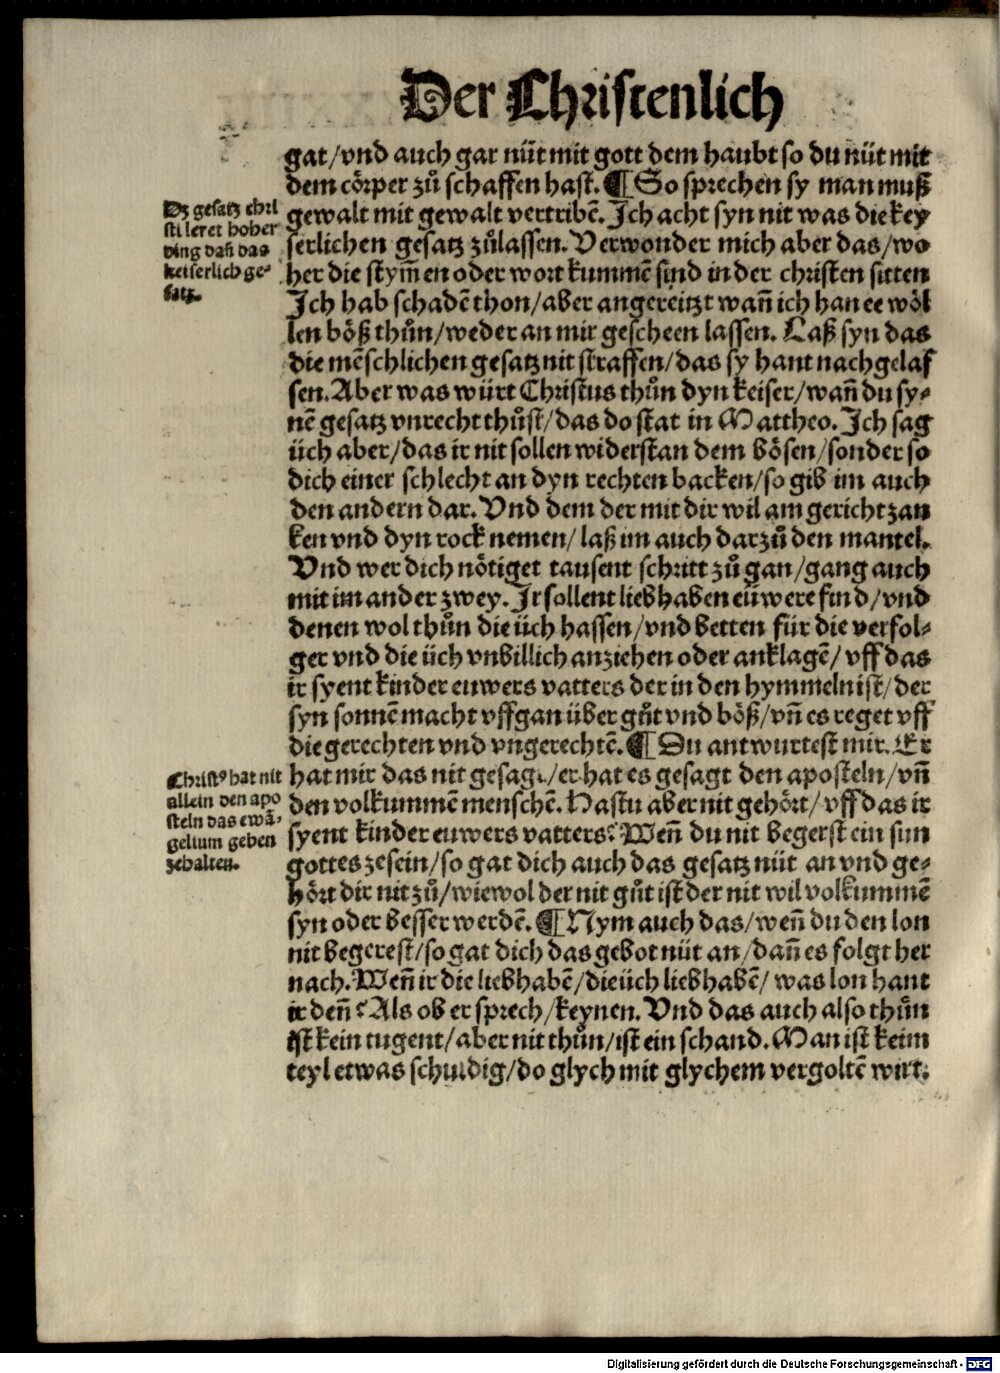 Der Christenlich
gat/vnd auch gar nüt mit gott dem haubt so du nüt mit
dem cörper zů schaffen hast. ¶ So sprechen sy man muß
Dz gesatz chri
sti leret hoher
ding dañ das
keiserlich ge-
satz.
gewalt mit gewalt vertribē. Ich acht syn nit was die key
serlichen gesatz zůlassen. Verwonder mich aber das/wo
her die stym̄en oder wort kummē sind in der christen sitten
Ich hab schadē thon/aber angereitzt wañ ich han ee wöl
len böß thůn/weder an mir gescheen lassen. Laß syn das
die mēschlichen gesatz nit straffen/das sy hant nachgelas
sen. Aber was würt Christus thůn dyn keiser/wañ du sy-
nē gesatz vnrecht thůst/das do stat in Mattheo. Ich sag
üch aber/das ir nit sollen widerstan dem bösen/sonder so
dich einer schlecht an dyn rechten backen/so gib im auch
den andern dar. Vnd dem der mit dir wil am gericht zan
ken vnd dyn rock nemen/laß im auch darzů den mantel.
Vnd wer dich nötiget tausent schritt zů gan/gang auch
mit im ander zwey. Ir sollent lieb haben eüwere find/vnd
denen wol thůn die üch hassen/vnd betten für die verfol-
ger vnd die üch vnbillich anziehen oder anklagē/vff das
ir syent kinder euwers vatters der in den hymmeln ist/der
syn sonnē macht vffgan über gůt vnd böß/vñ es reget vff
die gerechten vnd vngerechtē. ¶ Du antwurtest mir. Er
Christꝰ hat nit
allein den apo
steln das ewā-
gelium geben
zehalten.
hat mir das nit gesagt/er hat es gesagt den aposteln/vñ
den volkummē menschē. Hastu aber nit gehört/vff das ir
syent kinder euwers vatters? Weñ du nit begerst ein sun
gottes zesein/so gat dich auch das gesatz nüt an vnd ge-
hört dir nit zů/wiewol der nit gůt ist der nit wil volkummē
syn oder besser werdē. ¶ Nym auch das/weñ du den lon
nit begerest/so gat dich das gebot nüt an/dañ es folgt her
nach. Weñ ir die lieb habē/die üch lieb habē/was lon hant
ir deñ? Als ob er sprech/keynen. Vnd das auch also thůn
ist kein tugent/aber nit thůn/ist ein schand. Man ist keim
teyl etwas schuldig/do glych mit glychem vergoltē wirt.
Digitalisierung gefördert durch die Deutsche Forschungsgemeinschaft - DFG